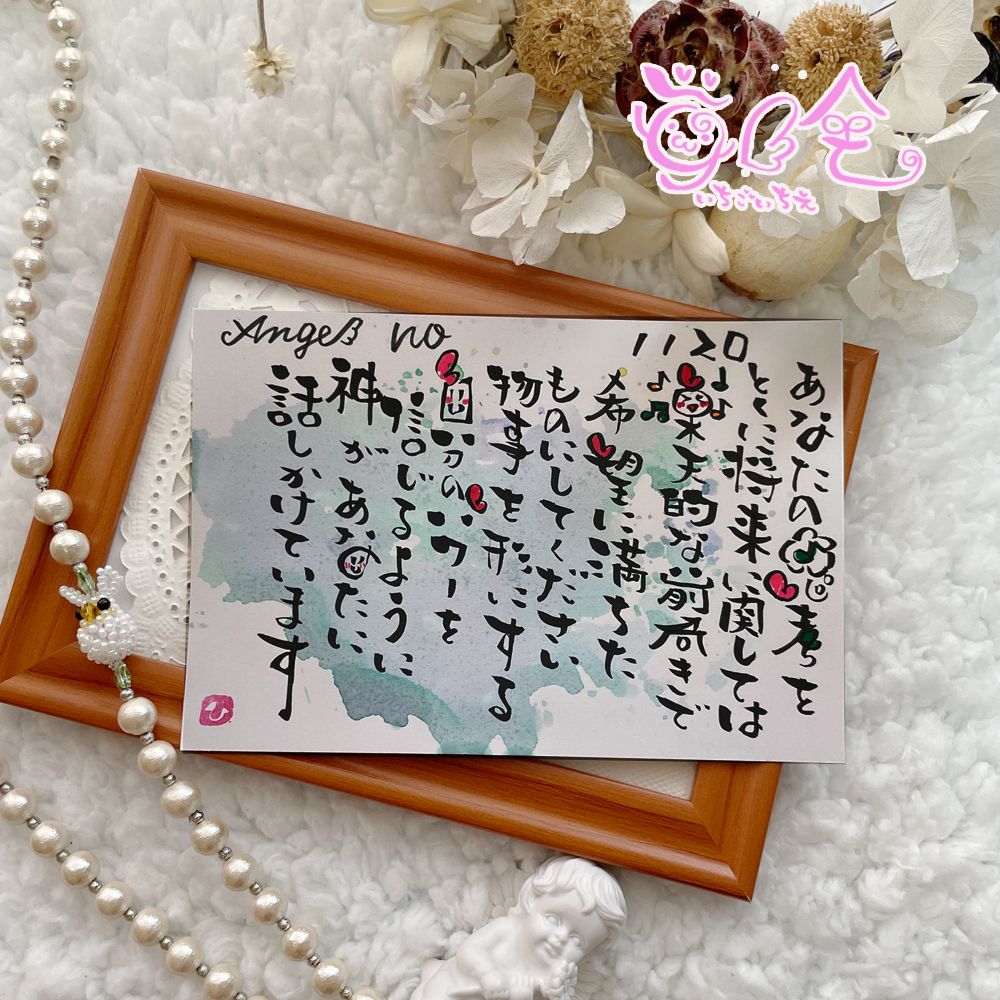 Angel no 1120
あなたの思考を
とくに将来に関しては
楽天的な前向きで
希望に満ちた
ものにしてください
物事を形にする
自分のパワーを
信じるように
神があなたに
話しかけています
ひ
いちごいちえ